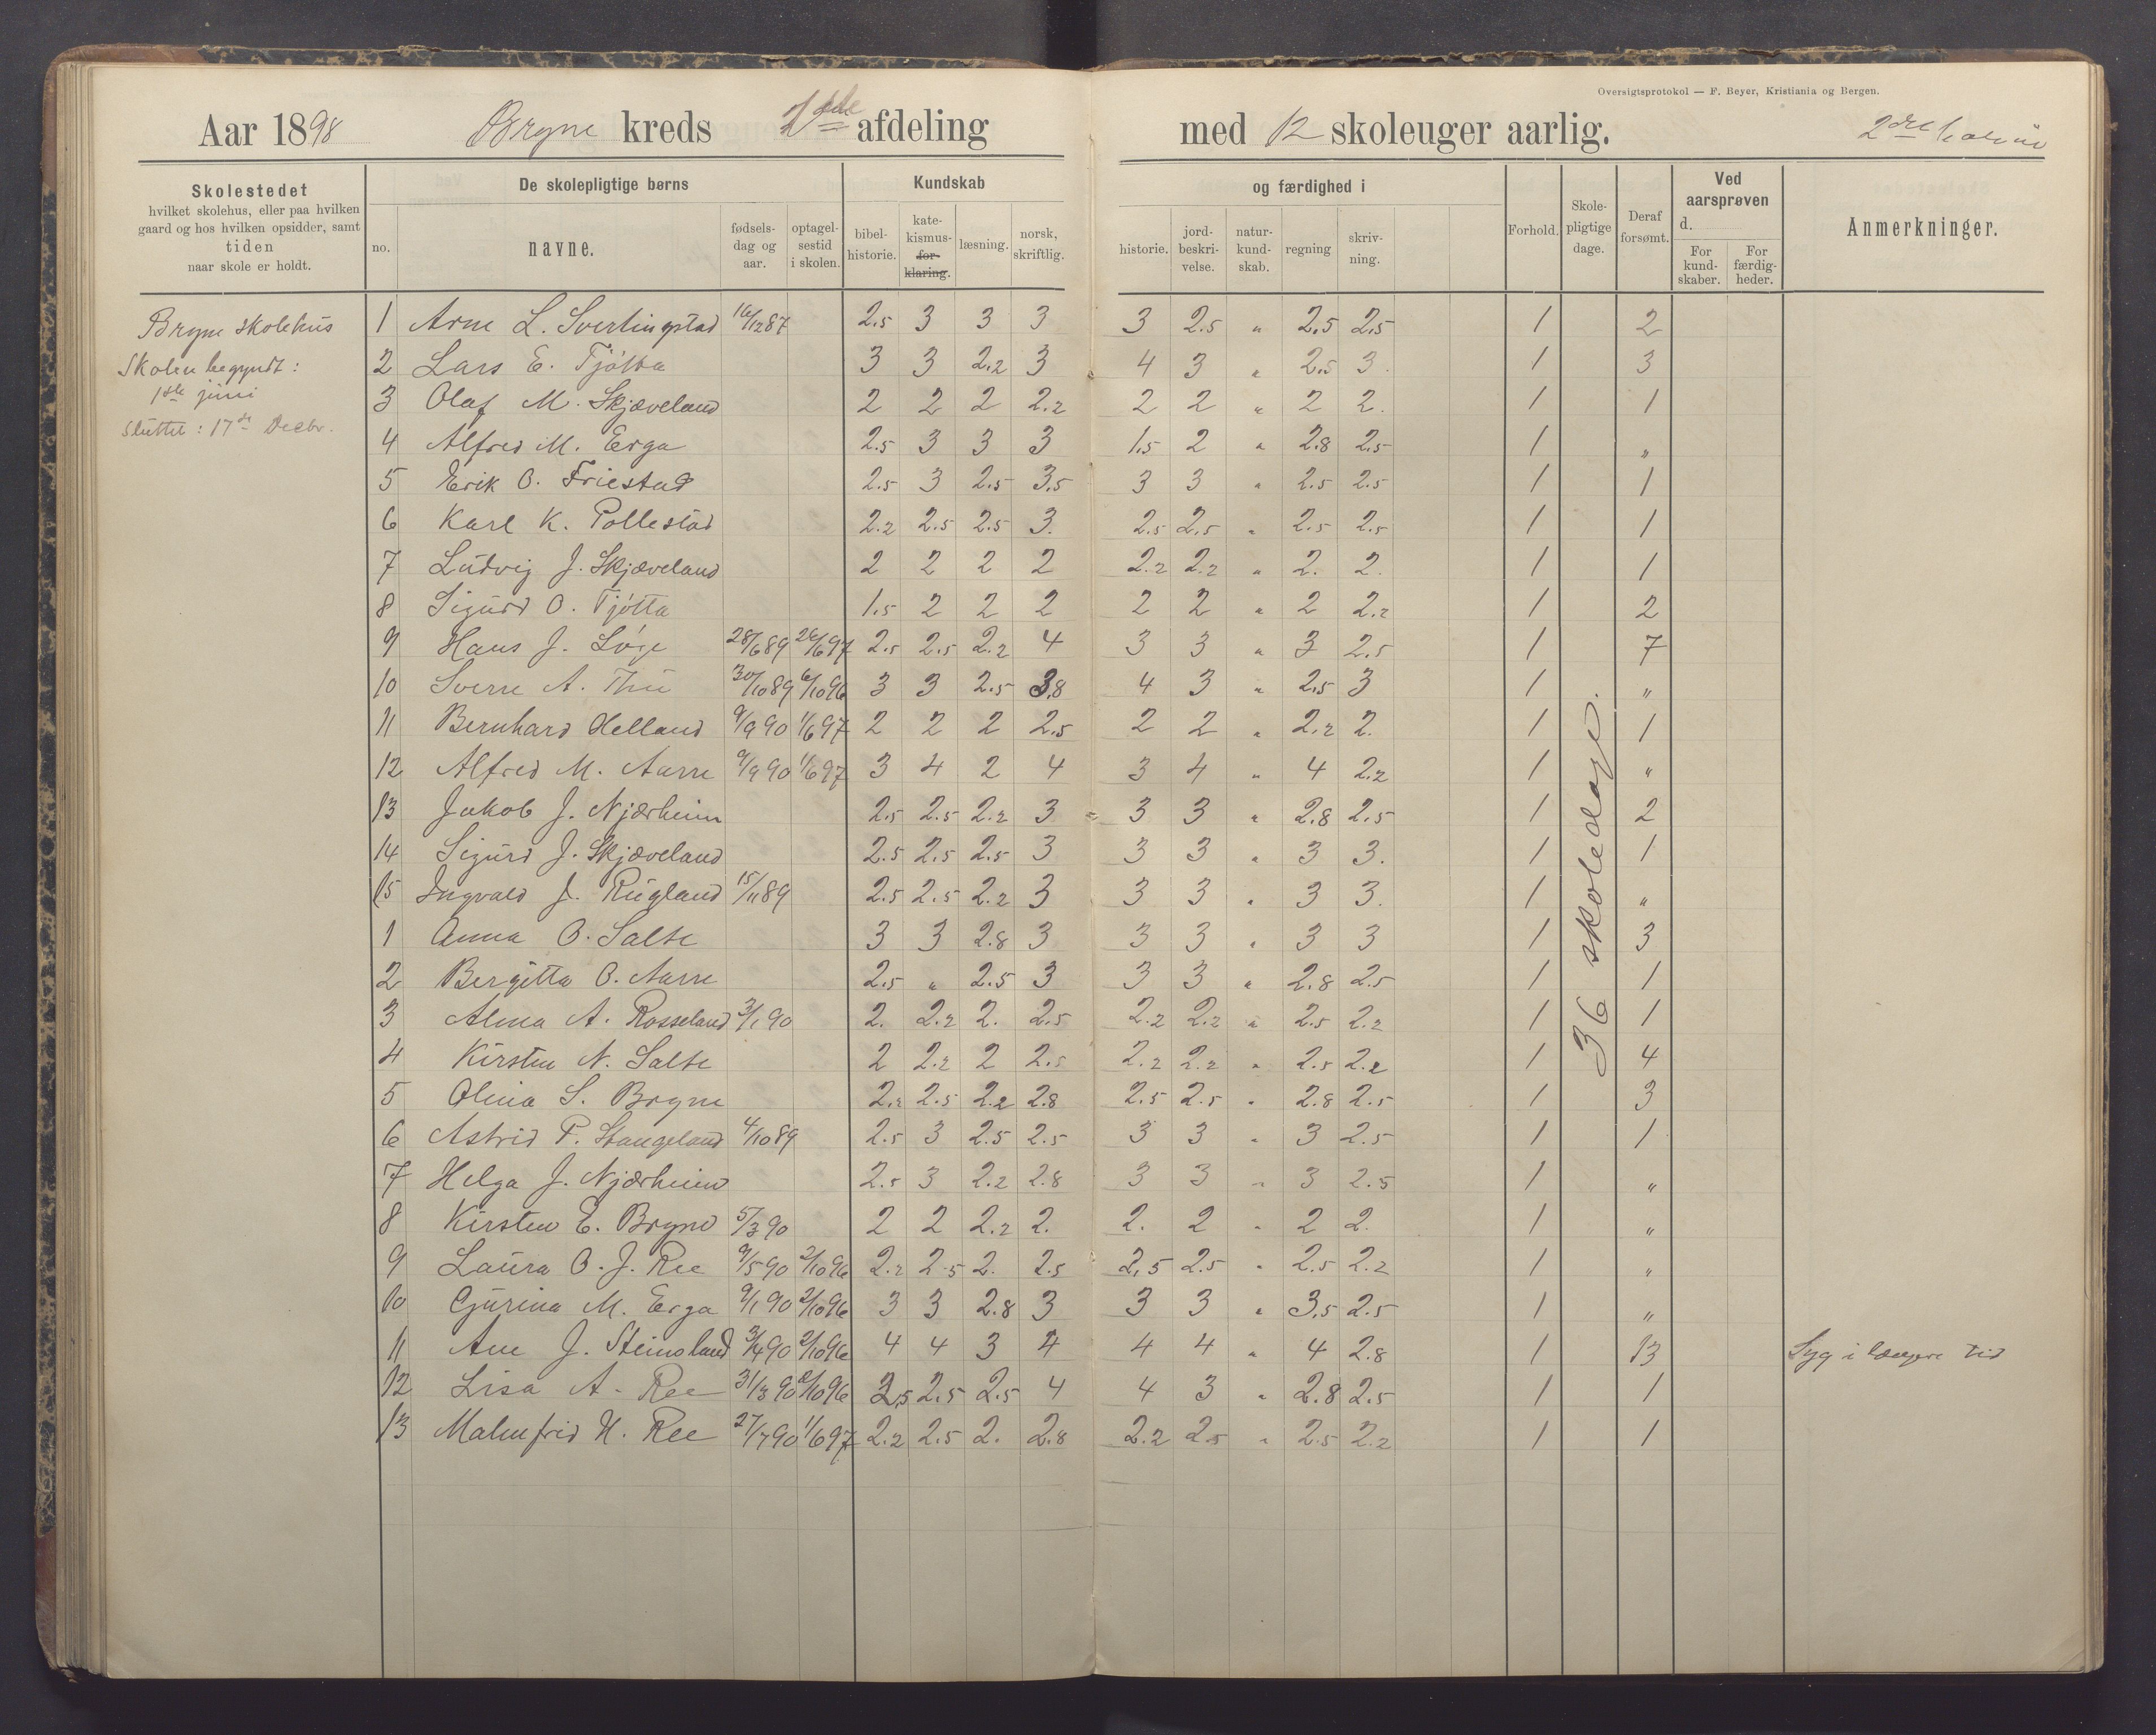 Oversigtsprotokol — F. Beyer, Kristiania og Bergen.
Aar 1898 Bryne kreds afdeling med 12 skoleuger aarlig. 2dre
Skolestedet
hvilket skolehus, eller paa hvilken
gaard og hos hvilken opsidder, samt
tiden
naar skole er holdt.
De skolepligtige børns
no. navne. fødsels-dag og aar. optagel-sestid i skolen.
Kundskab og færdighed i
bibel-historie. kate-kismus-for-klaring. læsning. norsk, skriftlig. historie. jord-beskri-velse. natur-kund-skab. regning skriv-ning.
Forhold. Skole-pligtige dage. Deraf forsømt.
Ved aarsprøven d.
For kund-skaber. For færdig-heder.
Anmerkninger.
Bryne skolehus
Skolen begyndt:
1ste juni
Sluttet: 17de Decbr.
36 skoledage.
1 Arne L. Sverlingstad 16/12 87 2.5 3 3 3 3 2.5 " 2.5 2.5 1 2
2 Lars E. Tjøtta 3 3 2.2 3 4 3 " 2.5 3. 1 3
3 Olaf M. Skjæveland 2 2 2 2.2 2 2 " 2 2. 1 1
4 Alfred M. Erga 2.5 3 3 3 1.5 2 " 2.8 2.5 1 "
5 Erik O. Friestad 2.5 3 2.5 3.5 3 3 " 2.5 2.5 1 1
6 Karl K. Pollestad 2.2 2.5 2.5 3. 2.5 2.5 " 2.5 2.5 1 1
7 Ludvig J. Skjæveland 2 2 2 2 2.2 2.2 " 2. 2. 1 1
8 Sigurd O. Tjøtta 1.5 2 2 2 2 2 " 2 2.2 1 2
9 Hans J. Løge 28/6 89 26/6 97 2.5 2.5 2.2 4 3 3 " 3 2.5 1 7
10 Sverre A. Thu 30/10 89 6/10 96 3 3 2.5 3.8 4 3 " 2.5 3 1 "
11 Bernhard Helland 9/9 90 1/6 97 2 2 2 2.5 2 2 " 2.2 2. 1 1
12 Alfred M. Aarre 9/9 90 1/6 97 3 4 2 4 3 4 " 4 2.2 1 "
13 Jakob J. Njærheim 2.5 2.5 2.2 3 3 3 " 2.8 2.5 1 2
14 Sigurd J. Skjæveland 2.5 2.5 2.5 3 3 3 " 3 3. 1 1
15 Ingvald J. Rugland 15/11 89 2.5 2.5 2.2 3 3 3 " 3 3. 1 "
1 Anna O. Salte 3 3 2.8 3 3 3 " 3 3 1 3
2 Bergitta O. Aarre 2.5 " 2.5 3 3 3 " 2.8 2.5 1 1
3 Alma A. Rosseland 3/1 90 2. 2.2 2. 2.5 2.2 2.2 " 2.5 2.2 1 1
4 Kirsten N. Salte 2 2.2 2 2.5 2.2 2.2 " 2.5 2.2 1 4
5 Olina S. Bryne 2.2 2.5 2.2 2.8 2.5 2.5 " 2.8 2.5 1 3
6 Astrid P. Stangeland 4/10 89 2.5 3 2.5 2.5 3 3 " 3 2.5 1 1
7 Helga J. Njærheim 2.5 3 2.2 2.8 3 3 " 3 2.5 1 "
8 Kirsten E. Bryne 5/3 90 2 2 2.2 2. 2. 2 " 2 2. 1 "
9 Laura O. J. Ree 9/5 90 2/10 96 2.2 2.5 2. 2.5 2.5 2.5 " 2.5 2.2 1 "
10 Gurina M. Erga 9/1 90 2/10 96 3 3 2.8 3 3 3 " 3.5 2.5 1 "
11 Ane J. Steinsland 3/4 90 2/10 96 4 4 3 4 4 4 " 4 2.8 1 13 Syg i længere tid
12 Lisa A. Ree 31/3 90 2/10 96 2.5 2.5 2.5 4 4 3 " 2.8 2.5 1 1
13 Malmfrid H. Ree 27/7 90 1/6 97 2.2 2.5 2. 2.8 2.2 2.5 " 2.5 2.2 1 1